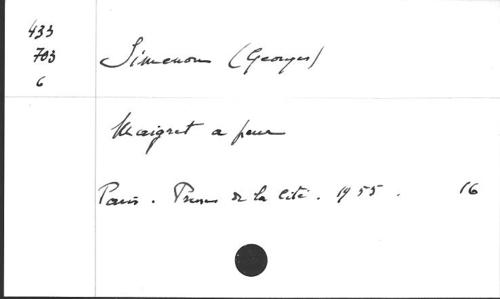 433
703
6
Simenon (Georges)
Maigret a peur
Paris. Presses de la Cité. 1955. 16